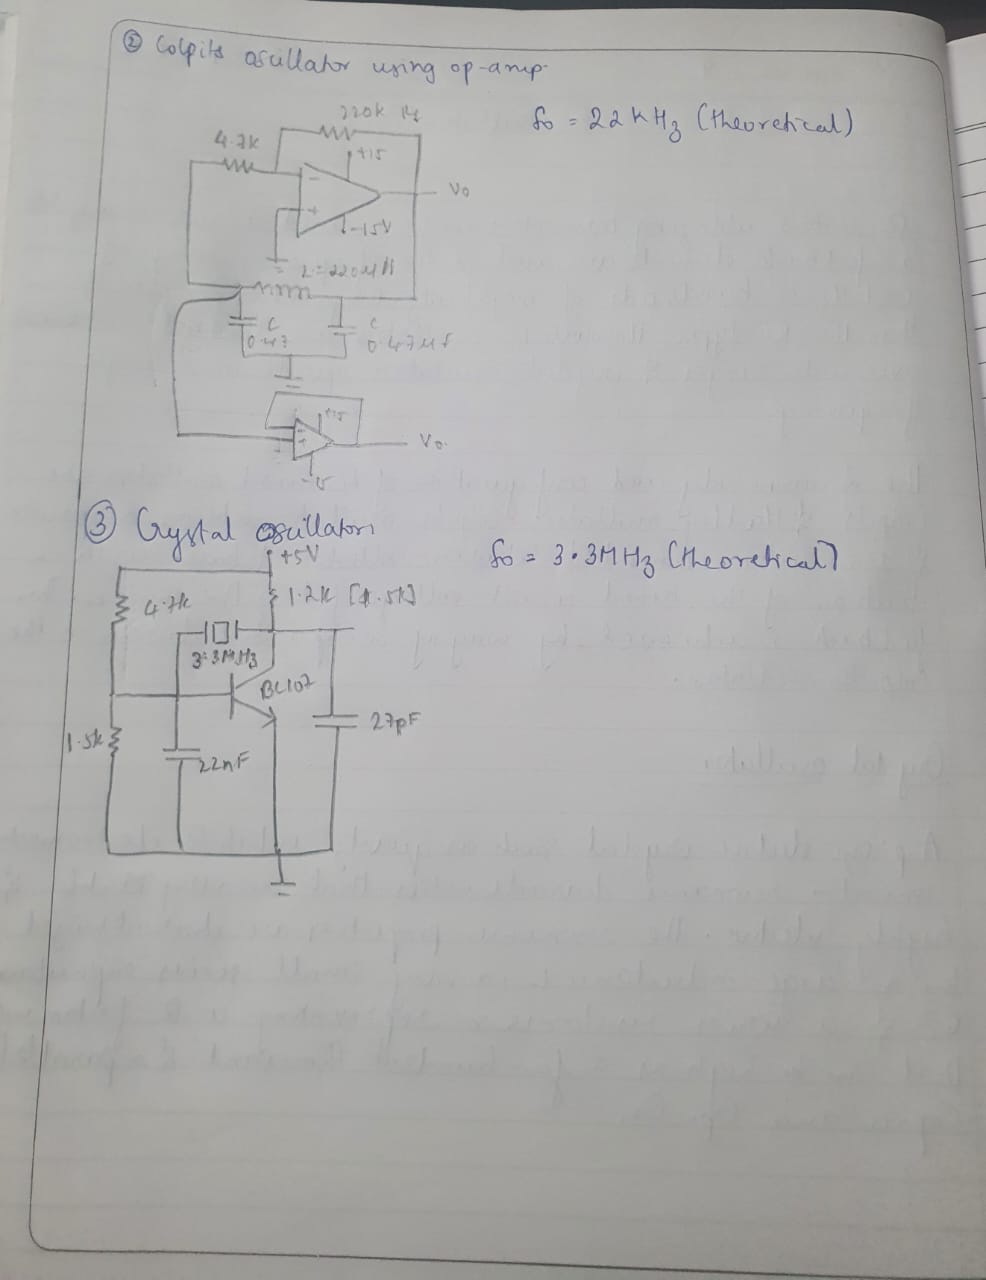 ② Colpits oscillator using op-amp
fo = 22 kHz (theoretical)
220k Rf
4.7k
+15
-
+
Vo
-15V
L=220μH
C
C
0.47
0.47μf
+15
-
+
Vo
③ Crystal oscillator
fo = 3.3MHz (theoretical)
+5V
4.7k
1.2k
3.3MHz
BC107
27pF
1.5k
22nF